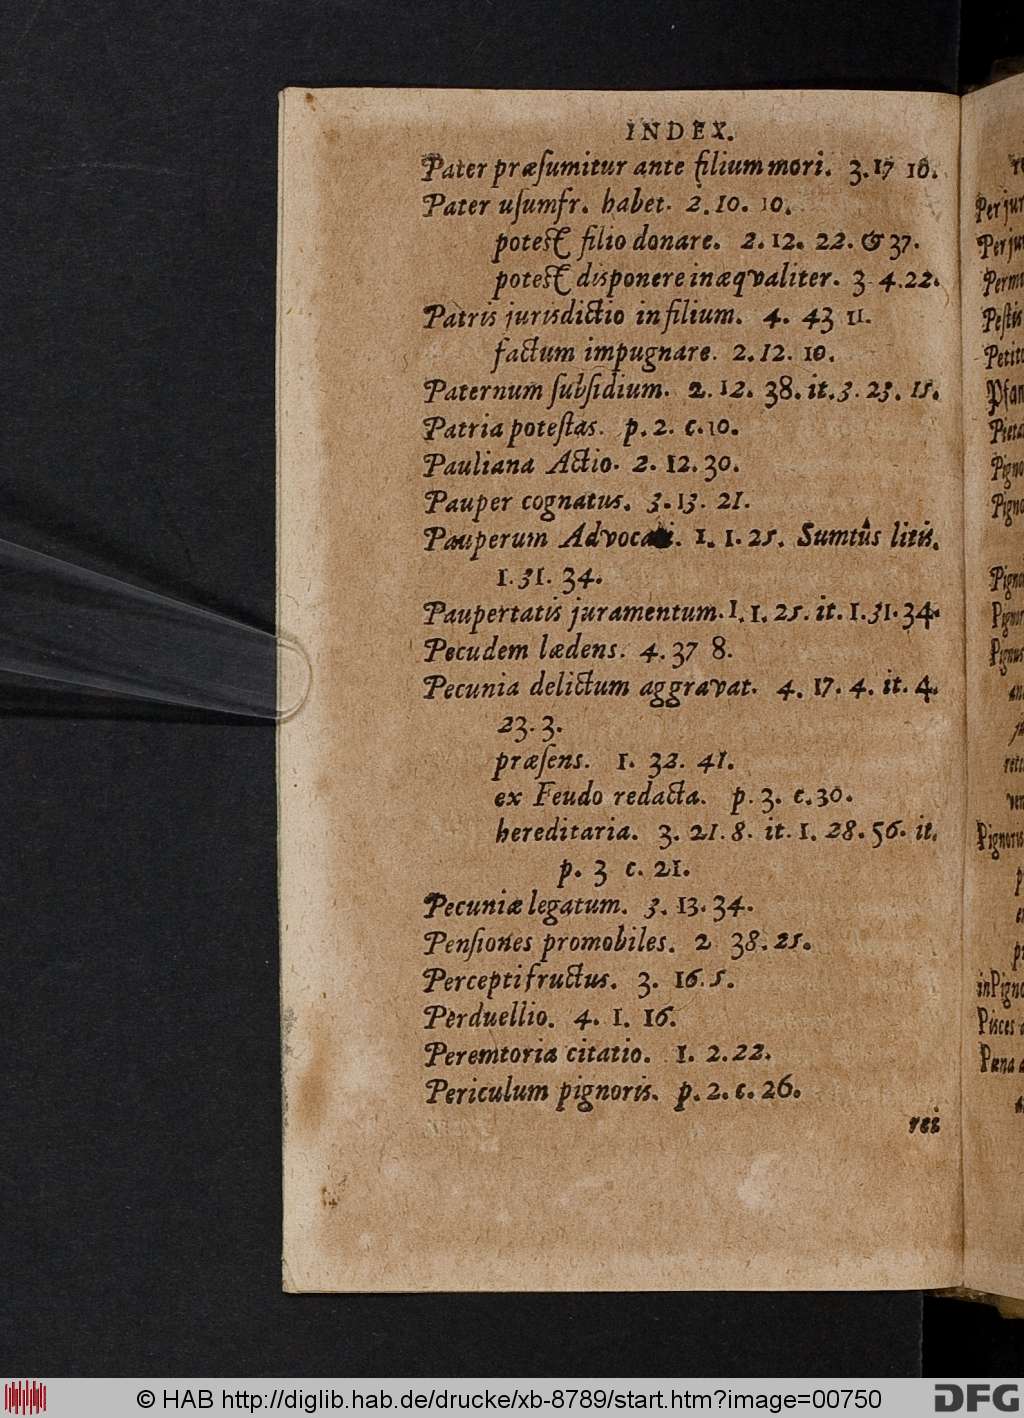 INDEX.
Pater præſumitur ante filium mori. 3. 17 10.
Pater uſumfr. habet. 2. 10. 10.
poteſt filio donare. 2. 12. 22. & 37.
poteſt disponere inæqvaliter. 3 4. 22.
Patris jurisdictio in filium. 4. 43 11.
factum impugnare. 2. 12. 10.
Paternum ſubſidium. 2. 12. 38. it. 3. 23. 15.
Patria poteſtas. p. 2. c. 10.
Pauliana Actio. 2. 12. 30.
Pauper cognatus. 3. 13. 21.
Pauperum Advocati. 1. 1. 25. Sumtûs litis.
1. 31. 34.
Paupertatis juramentum. 1. 1. 25. it. 1. 31. 34.
Pecudem lædens. 4. 37 8.
Pecunia delictum aggravat. 4. 17. 4. it. 4.
23. 3.
præſens. 1. 32. 41.
ex Feudo redacta. p. 3. c. 30.
hereditaria. 3. 21. 8. it. 1. 28. 56. it.
p. 3 c. 21.
Pecuniæ legatum. 3. 13. 34.
Penſiones promobiles. 2 38. 25.
Percepti fructus. 3. 16. 5.
Perduellio. 4. 1. 16.
Peremtoria citatio. 1. 2. 22.
Periculum pignoris. p. 2. c. 26.
rei
Per jur
Per ju
Perm
Peſtis
Petit
Pfan
Pieta
Pigno
Pigno
Pigno
Pignor
Pignus
Pignoris
in Pigno
Pisces
Pœna a
© HAB http://diglib.hab.de/drucke/xb-8789/start.htm?image=00750
DFG